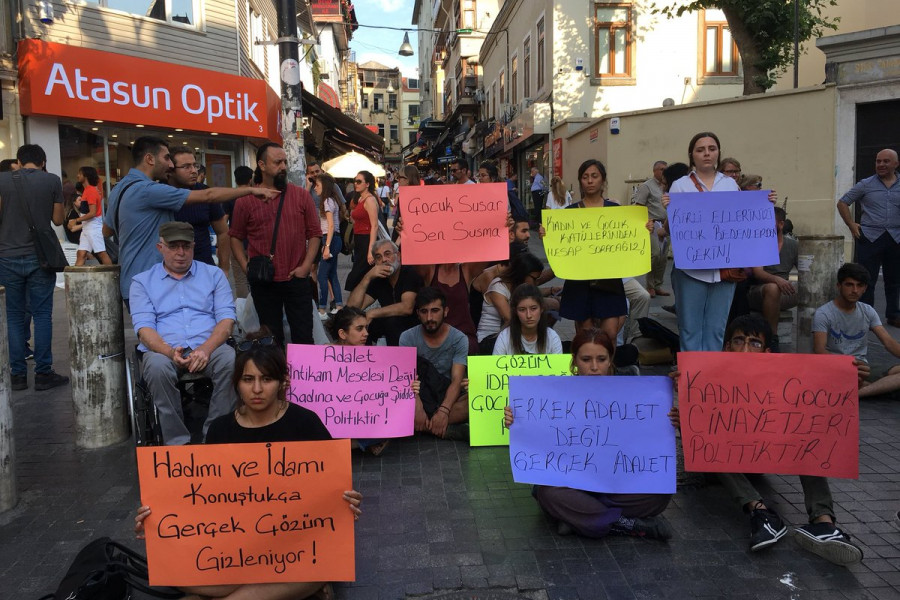 Atasun Optik
Çocuk Susar
Sen Susma
KADIN VE ÇOCUK
KATİLLERİNDEN
HESAP SORACAĞIZ!
KİRLİ ELLERİNİZİ
ÇOCUK BEDENLERDEN
ÇEKİN!
Adalet
İntikam Meselesi Değil
Kadına ve Çocuğa Şiddet
Politiktir!
ERKEK ADALET
DEĞİL
GERÇEK ADALET
KADIN VE ÇOCUK
CİNAYETLERİ
POLİTİKTİR!
Hadımı ve İdamı
Konuştukça
Gerçek Çözüm
Gizleniyor!